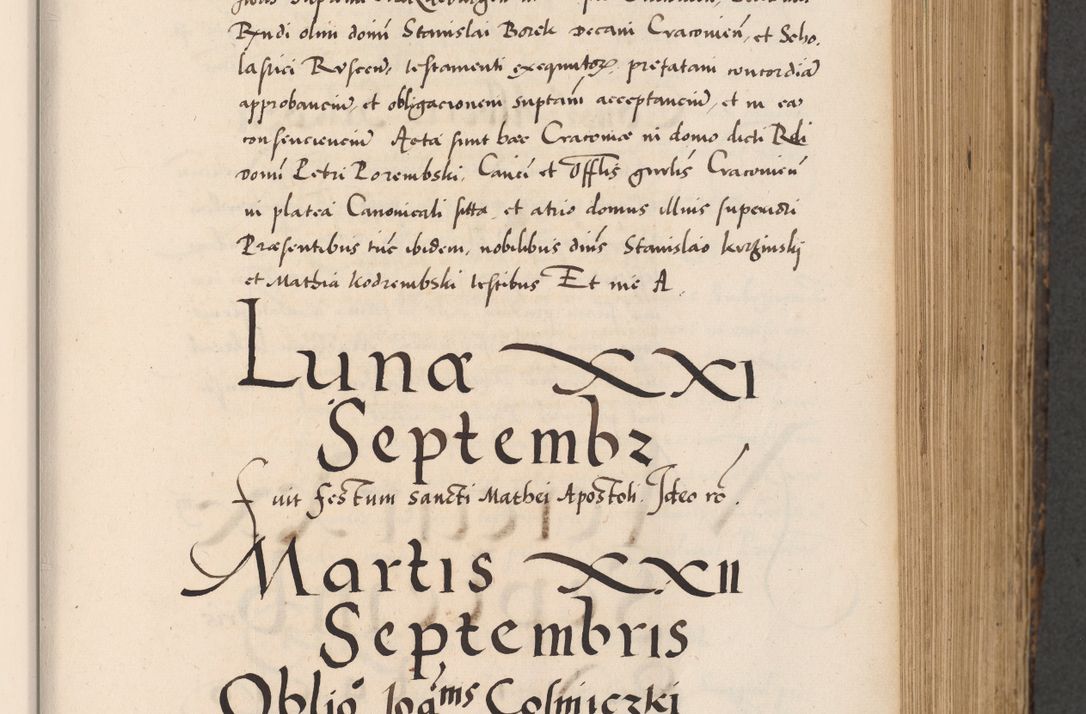 Rndi olim domi Stanislai Borek decani Cracovien, et Scho.
lastici Kyscen, testamenti exequutor, prefatam concordiā
approbancium, et obligacionem suptam acceptancium, et in ea
consenciencium Acta sunt haec Cracoviae in domo dicti Rdi
domi Petri Porembski, Canci et Offlis gnrlis Cracovien
in platea Canonicali sitta, et atrio domus illius superiori
Praesentibus tūc ibidem, nobilibus dnis Stanislao
et Mathia Kodrembski testibus Et me A.
Lunæ XXI
Septembz
Fuit festum sancti Mathei Apostoli. Ideo rō.
Martis XXII
Septembris
Obligo Ioāms Cosmiczki